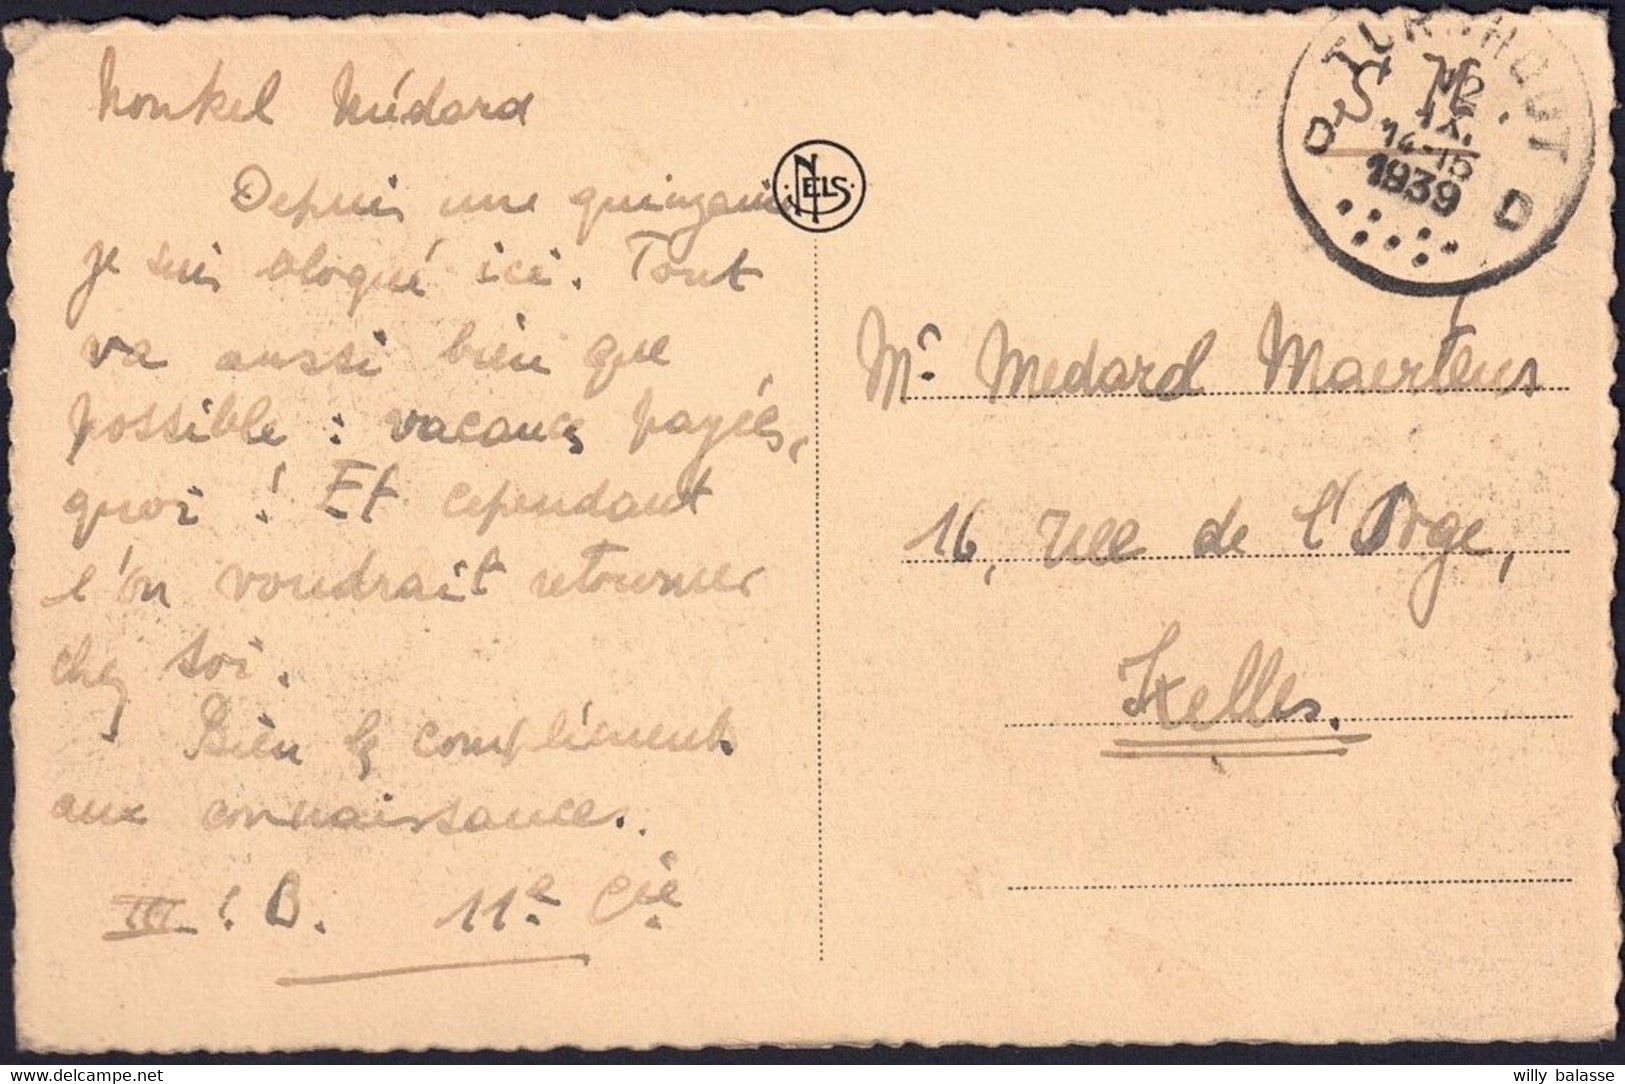 Nonkel Médard
Depuis une quinzaine
je suis bloqué ici. Tout
va aussi bien que
possible : vacances payées,
quoi ! Et cependant
l'on voudrait retourner
chez soi.
Bien le compliment
aux connaissances.
III : B. 11e Cie
NELS
TURNHOUT
S M.
IX.
14-15
1939
D D
Mr Medard Maertens
16, rue de l'Orge,
Ixelles.
willy balasse